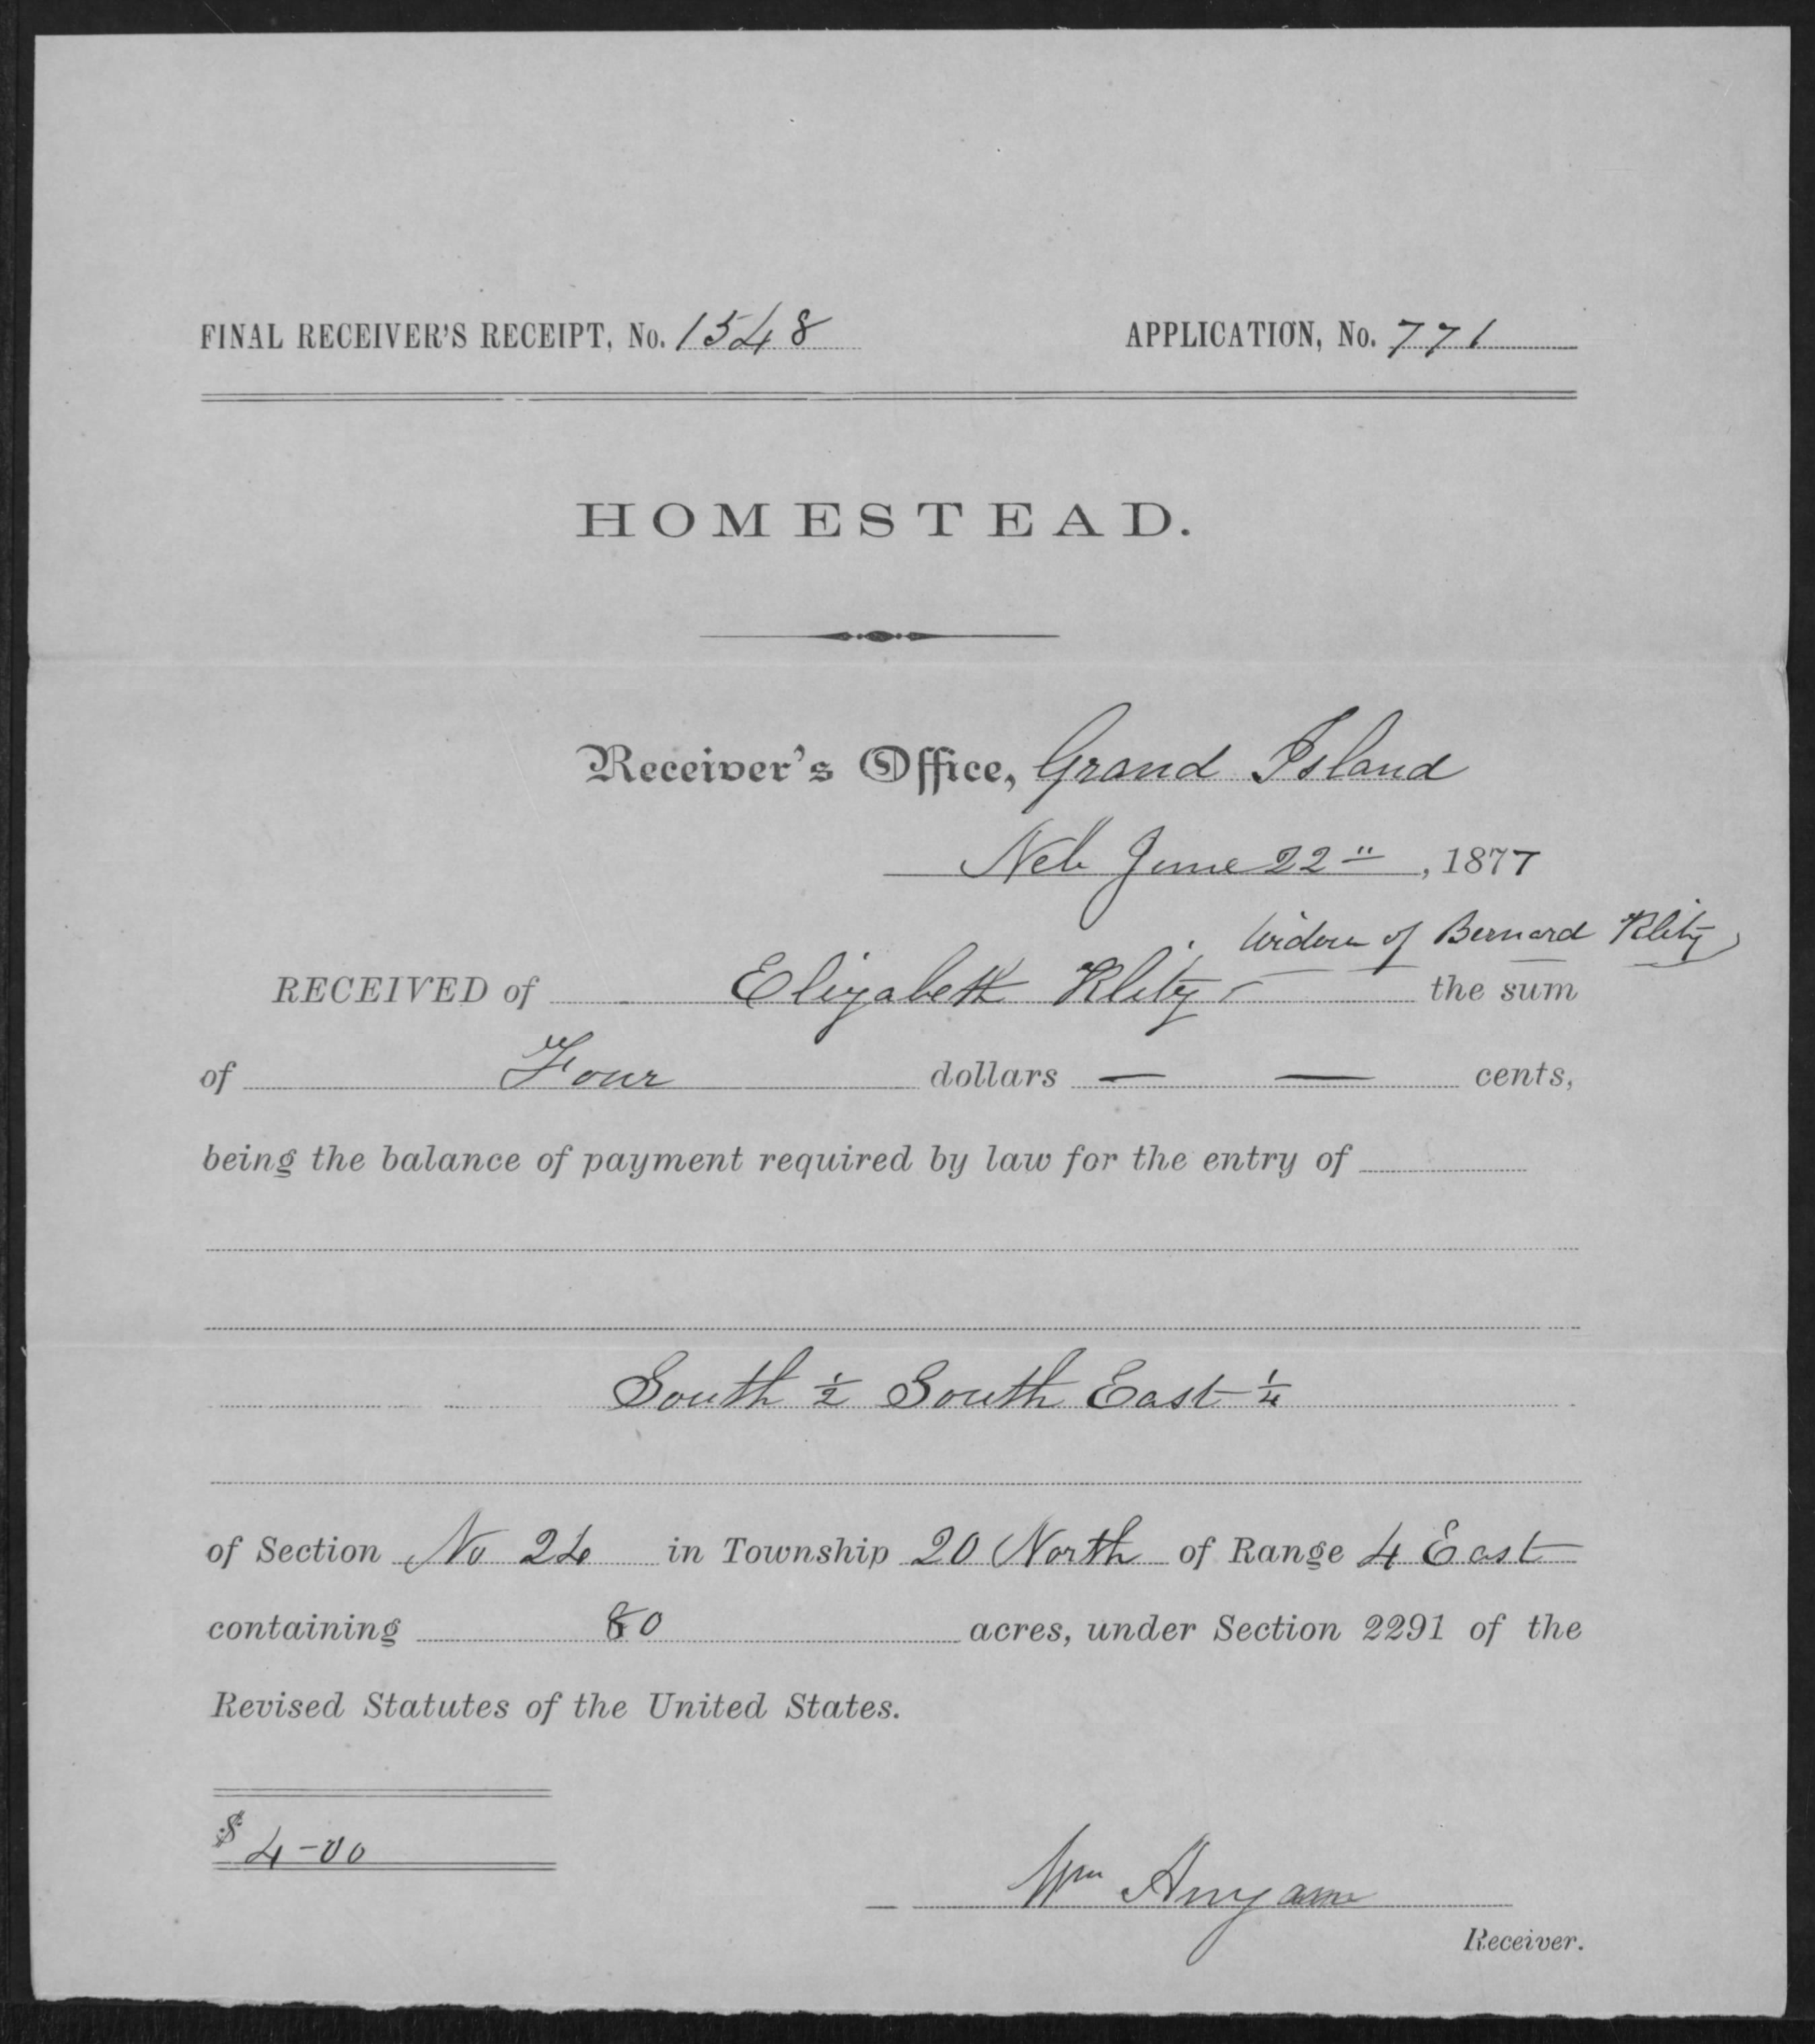 FINAL RECEIVER'S RECEIPT, No. 1548 APPLICATION, No. 771
HOMESTEAD.
Receiver's Office, Grand Island
Neb June 22", 1877
widow of Bernard Klitz
RECEIVED of Elizabeth Klitz the sum
of Four dollars — — cents,
being the balance of payment required by law for the entry of
South ½ South East ¼
of Section No 24 in Township 20 North of Range 4 East
containing 80 acres, under Section 2291 of the
Revised Statutes of the United States.
$ 4-00
Wm Anyan
Receiver.